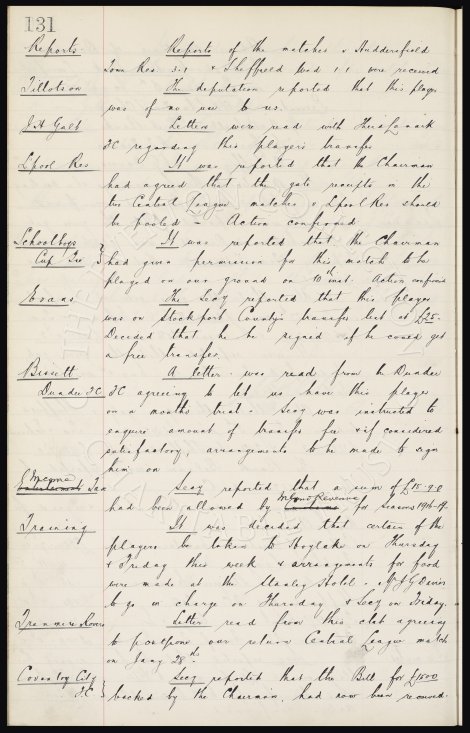 131
Reports Reports of the matches v Huddersfield
Town Res 3.1 & Sheffield Wed 1.1 were received
Tillotson The deputation reported that this player
was of no use to us.
J.A Galt Letters were read with Third Lanark
FC regarding this player's transfer
Lpool Res It was reported that the Chairman
had agreed that the gate receipts in the
two Central League matches v Lpool Res should
be pooled - Action confirmed
Schoolboys It was reported that the Chairman
Cup Tie had given permission for this match to be
played on our ground on 10th inst. Action confirmed
Evans The Secy reported that this player
was on Stockport County's transfer list at £25.
Decided that he be signed if he could get
a free transfer.
Bissett A letter was read from the Dundee
Dundee FC FC agreeing to let us have this player
on a months trial. Secy was instructed to
enquire amount of transfer fee & if considered
satisfactory, arrangements to be made to sign
him on
Income
Entertainment Tax Secy reported that a sum of £15-9-0
had been allowed by Inland Revenue Customs for Seasons 1916-19.
Training It was decided that certain of the
players be taken to Hoylake on Thursday
& Friday this week & arrangements for food
were made at the Stanley Hotel. Mr J G Davies
to go in charge on Thursday & Secy on Friday.
Tranmere Rovers Letter read from this club agreeing
to postpone our return Central League match
on Jany 28th
Coventry City Secy reported that the Bill for £1000
FC backed by the Chairman, had now been received.